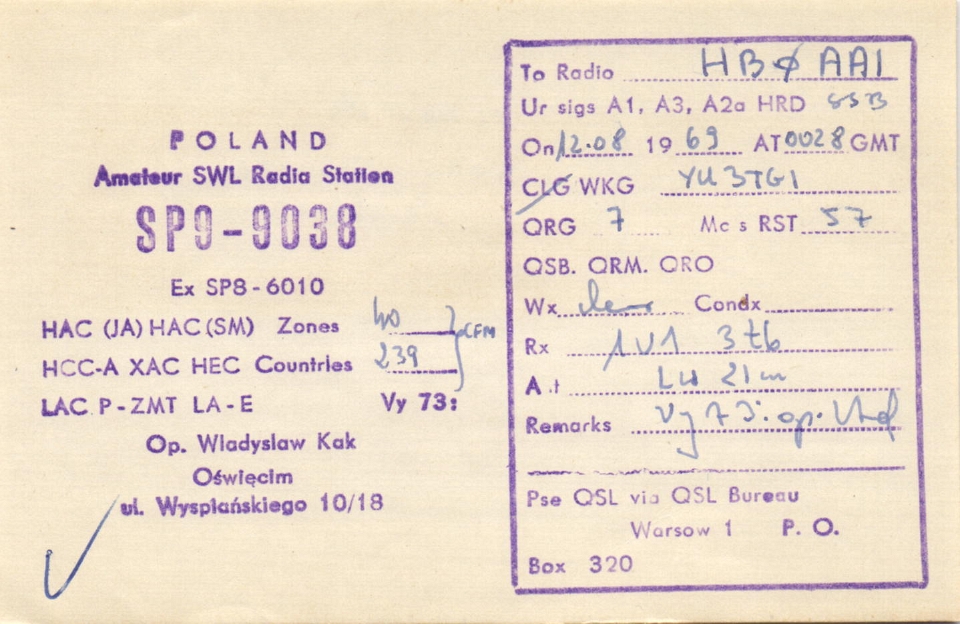 POLAND
Amateur SWL Radio Station
SP9-9038
Ex SP8-6010
HAC (JA) HAC (SM) Zones 40
HCC-A XAC HEC Countries 239
CFM
LAC P-ZMT LA-E Vy 73:
Op. Wladyslaw Kak
Oświęcim
ul. Wyspiańskiego 10/18
To Radio HBØAAI
Ur sigs A1, A3, A2a HRD SSB
On 12.08 1969 AT 0028 GMT
CLG WKG YU3TGI
QRG 7 Mc s RST 57
QSB. QRM. QRO
Wx Condx
Rx 1V1 3tb
A t LW 21m
Remarks Vy 73. op.
Pse QSL via QSL Bureau
Warsow 1 P. O.
Box 320